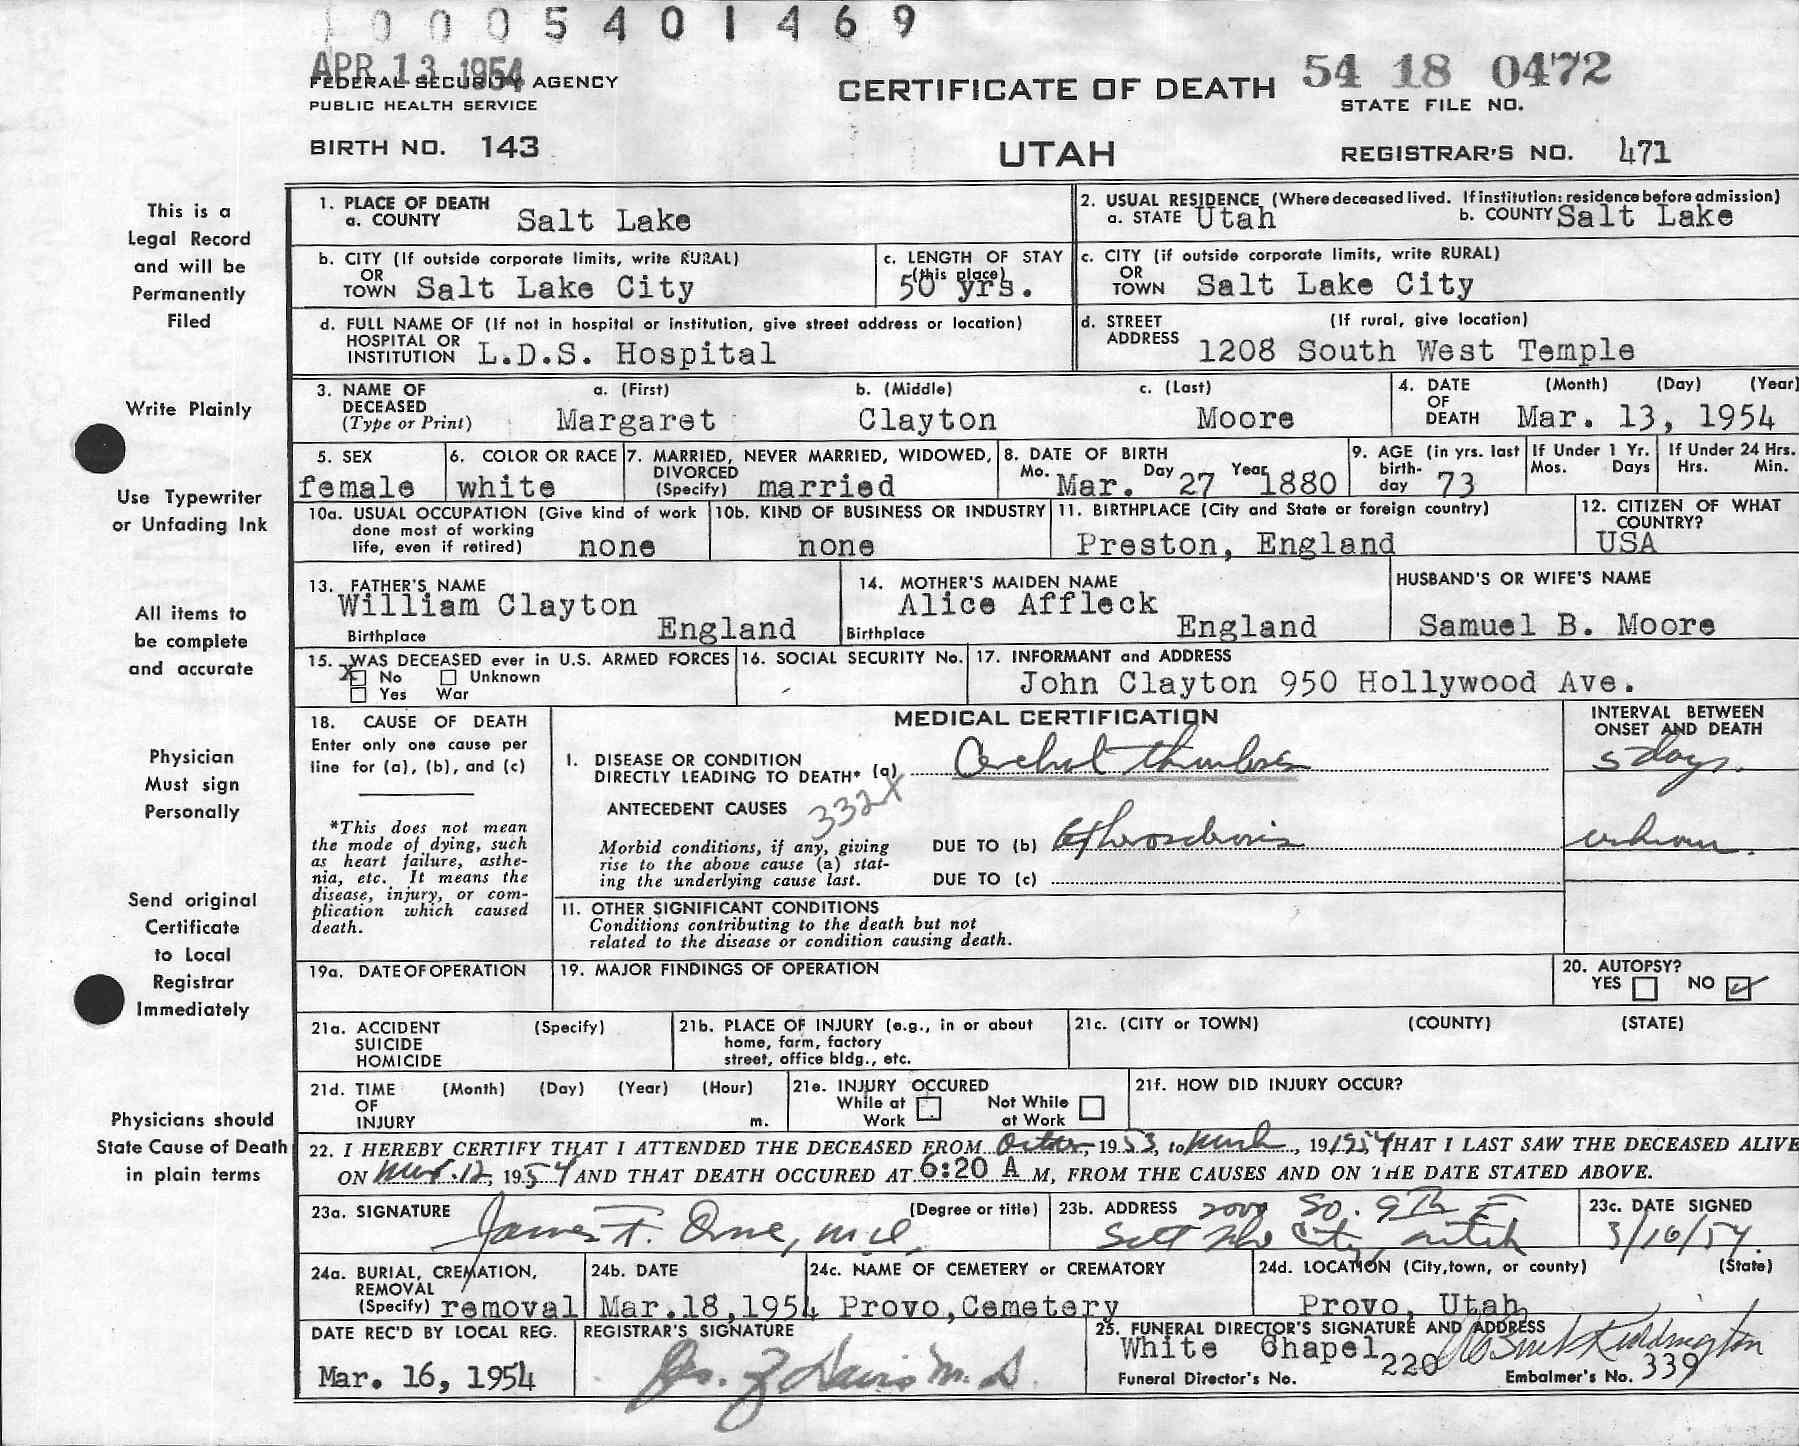 0005401469
APR 13 1954
FEDERAL SECURITY AGENCY
PUBLIC HEALTH SERVICE
CERTIFICATE OF DEATH
54 18 0472
STATE FILE NO.
BIRTH NO. 143
UTAH
REGISTRAR'S NO. 471
This is a
Legal Record
and will be
Permanently
Filed
Write Plainly
Use Typewriter
or Unfading Ink
All items to
be complete
and accurate
Physician
Must sign
Personally
Send original
Certificate
to Local
Registrar
Immediately
Physicians should
State Cause of Death
in plain terms
1. PLACE OF DEATH
a. COUNTY Salt Lake
2. USUAL RESIDENCE (Where deceased lived. If institution: residence before admission)
a. STATE Utah b. COUNTY Salt Lake
b. CITY (If outside corporate limits, write RURAL)
OR
TOWN Salt Lake City
c. LENGTH OF STAY
(this place)
50 yrs.
c. CITY (if outside corporate limits, write RURAL)
OR
TOWN Salt Lake City
d. FULL NAME OF (If not in hospital or institution, give street address or location)
HOSPITAL OR
INSTITUTION L.D.S. Hospital
d. STREET (If rural, give location)
ADDRESS 1208 South West Temple
3. NAME OF a. (First) b. (Middle) c. (Last)
DECEASED
(Type or Print) Margaret Clayton Moore
4. DATE (Month) (Day) (Year)
OF
DEATH Mar. 13, 1954
5. SEX
female
6. COLOR OR RACE
white
7. MARRIED, NEVER MARRIED, WIDOWED,
DIVORCED
(Specify) married
8. DATE OF BIRTH
Mo. Mar. Day 27 Year 1880
9. AGE (in yrs. last
birth-
day 73
If Under 1 Yr.
Mos. Days
If Under 24 Hrs.
Hrs. Min.
10a. USUAL OCCUPATION (Give kind of work
done most of working
life, even if retired) none
10b. KIND OF BUSINESS OR INDUSTRY
none
11. BIRTHPLACE (City and State or foreign country)
Preston, England
12. CITIZEN OF WHAT
COUNTRY?
USA
13. FATHER'S NAME
William Clayton
Birthplace England
14. MOTHER'S MAIDEN NAME
Alice Affleck
Birthplace England
HUSBAND'S OR WIFE'S NAME
Samuel B. Moore
15. WAS DECEASED ever in U.S. ARMED FORCES
X No Unknown
Yes War
16. SOCIAL SECURITY No.
17. INFORMANT and ADDRESS
John Clayton 950 Hollywood Ave.
18. CAUSE OF DEATH
Enter only one cause per
line for (a), (b), and (c)
*This does not mean
the mode of dying, such
as heart failure, asthe-
nia, etc. It means the
disease, injury, or com-
plication which caused
death.
MEDICAL CERTIFICATION
INTERVAL BETWEEN
ONSET AND DEATH
I. DISEASE OR CONDITION
DIRECTLY LEADING TO DEATH* (a) Cerebral thrombosis
5 days.
ANTECEDENT CAUSES 332X
Morbid conditions, if any, giving
rise to the above cause (a) stat-
ing the underlying cause last.
DUE TO (b) Atherosclerosis
unknown.
DUE TO (c)
II. OTHER SIGNIFICANT CONDITIONS
Conditions contributing to the death but not
related to the disease or condition causing death.
19a. DATE OF OPERATION
19. MAJOR FINDINGS OF OPERATION
20. AUTOPSY?
YES NO
21a. ACCIDENT (Specify)
SUICIDE
HOMICIDE
21b. PLACE OF INJURY (e.g., in or about
home, farm, factory
street, office bldg., etc.
21c. (CITY or TOWN) (COUNTY) (STATE)
21d. TIME (Month) (Day) (Year) (Hour)
OF
INJURY m.
21e. INJURY OCCURED
While at Not While
Work at Work
21f. HOW DID INJURY OCCUR?
22. I HEREBY CERTIFY THAT I ATTENDED THE DECEASED FROM October, 1953, to March, 191954 THAT I LAST SAW THE DECEASED ALIVE
ON Mar. 12, 1954 AND THAT DEATH OCCURED AT 6:20 A M, FROM THE CAUSES AND ON THE DATE STATED ABOVE.
23a. SIGNATURE (Degree or title)
James F. Orme, M.D.
23b. ADDRESS 2000 So. 9th E
Salt Lake City, Utah
23c. DATE SIGNED
3/16/54.
24a. BURIAL, CREMATION,
REMOVAL
(Specify) removal
24b. DATE
Mar.18,1954
24c. NAME OF CEMETERY or CREMATORY
Provo,Cemetery
24d. LOCATION (City, town, or county) (State)
Provo, Utah
DATE REC'D BY LOCAL REG.
Mar. 16, 1954
REGISTRAR'S SIGNATURE
Davis M.D.
25. FUNERAL DIRECTOR'S SIGNATURE AND ADDRESS
White Chapel
Funeral Director's No. 220
Embalmer's No. 339